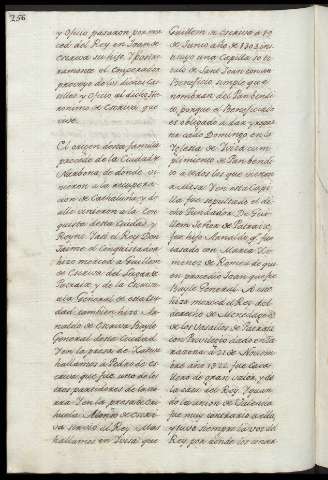 256
y Oficio pasaron por mer
ced del Rey en Joan de
Escriva su hijo. Y poste
riormente el Emperador
proveyo de los dichos Cas
tillos y Oficio al dicho Ge
ronimo de Escriva que
vive.
El origen desta familia
procede de la Ciudad de
Narbona de donde vi
nieron a la recupera
cion de Cathaluña y de
alli vinieron a la Con
quista desta Ciudad y
Reyno. Y assi el Rey Don
Jayme el Conquistador
hizo merced a Guillem
de Escriva del Lugar de
Patraix y de la Escriva
nia General de esta Ciu
dad tambien hizo Ar
naldo de Escriva Bayle
General desta Ciudad.
Y en la presa de Xativa
hallamos a Pedro de Es
criva que fue uno de los
tres partidores de la tie
rra. Y en la presa de Ori
huela Alonso de Escri
va sirvio al Rey. Mas
hallamos en Visia que
Guillem de Escriva a 10
de Junio año de 1303 ins
tituyo una Capilla so ti
tulo de Sant Joan con un
Beneficio simple que
nombran del Pan bendi
to, porque el Beneficiado
es obligado a dar y repar
tir cada Domingo en la
Iglesia de
plimiento de Pan bendi
to a todos los que vienen
a Missa. Y en esta Capi
lla fue sepultado el di
cho Fundador. De Gui
llem Señor de Patraix,
fue hijo Arnaldo q. fue
casado con Maria Xi
menez de Romeu de quien
procedio Joan que fue
Bayle General. A este
hizo merced el Rey del
derecho de
de los Vasallos de Patraix
con Privilegio dado en Ta
ragona a 22 de Noviem
bre año 1322 fue Cava
llero de gran valor, y de
la casa del Rey. Y quan
do la union de Valencia
fue muy contrario a ella
y tuvo siempre la voz del
Rey, por donde los conser